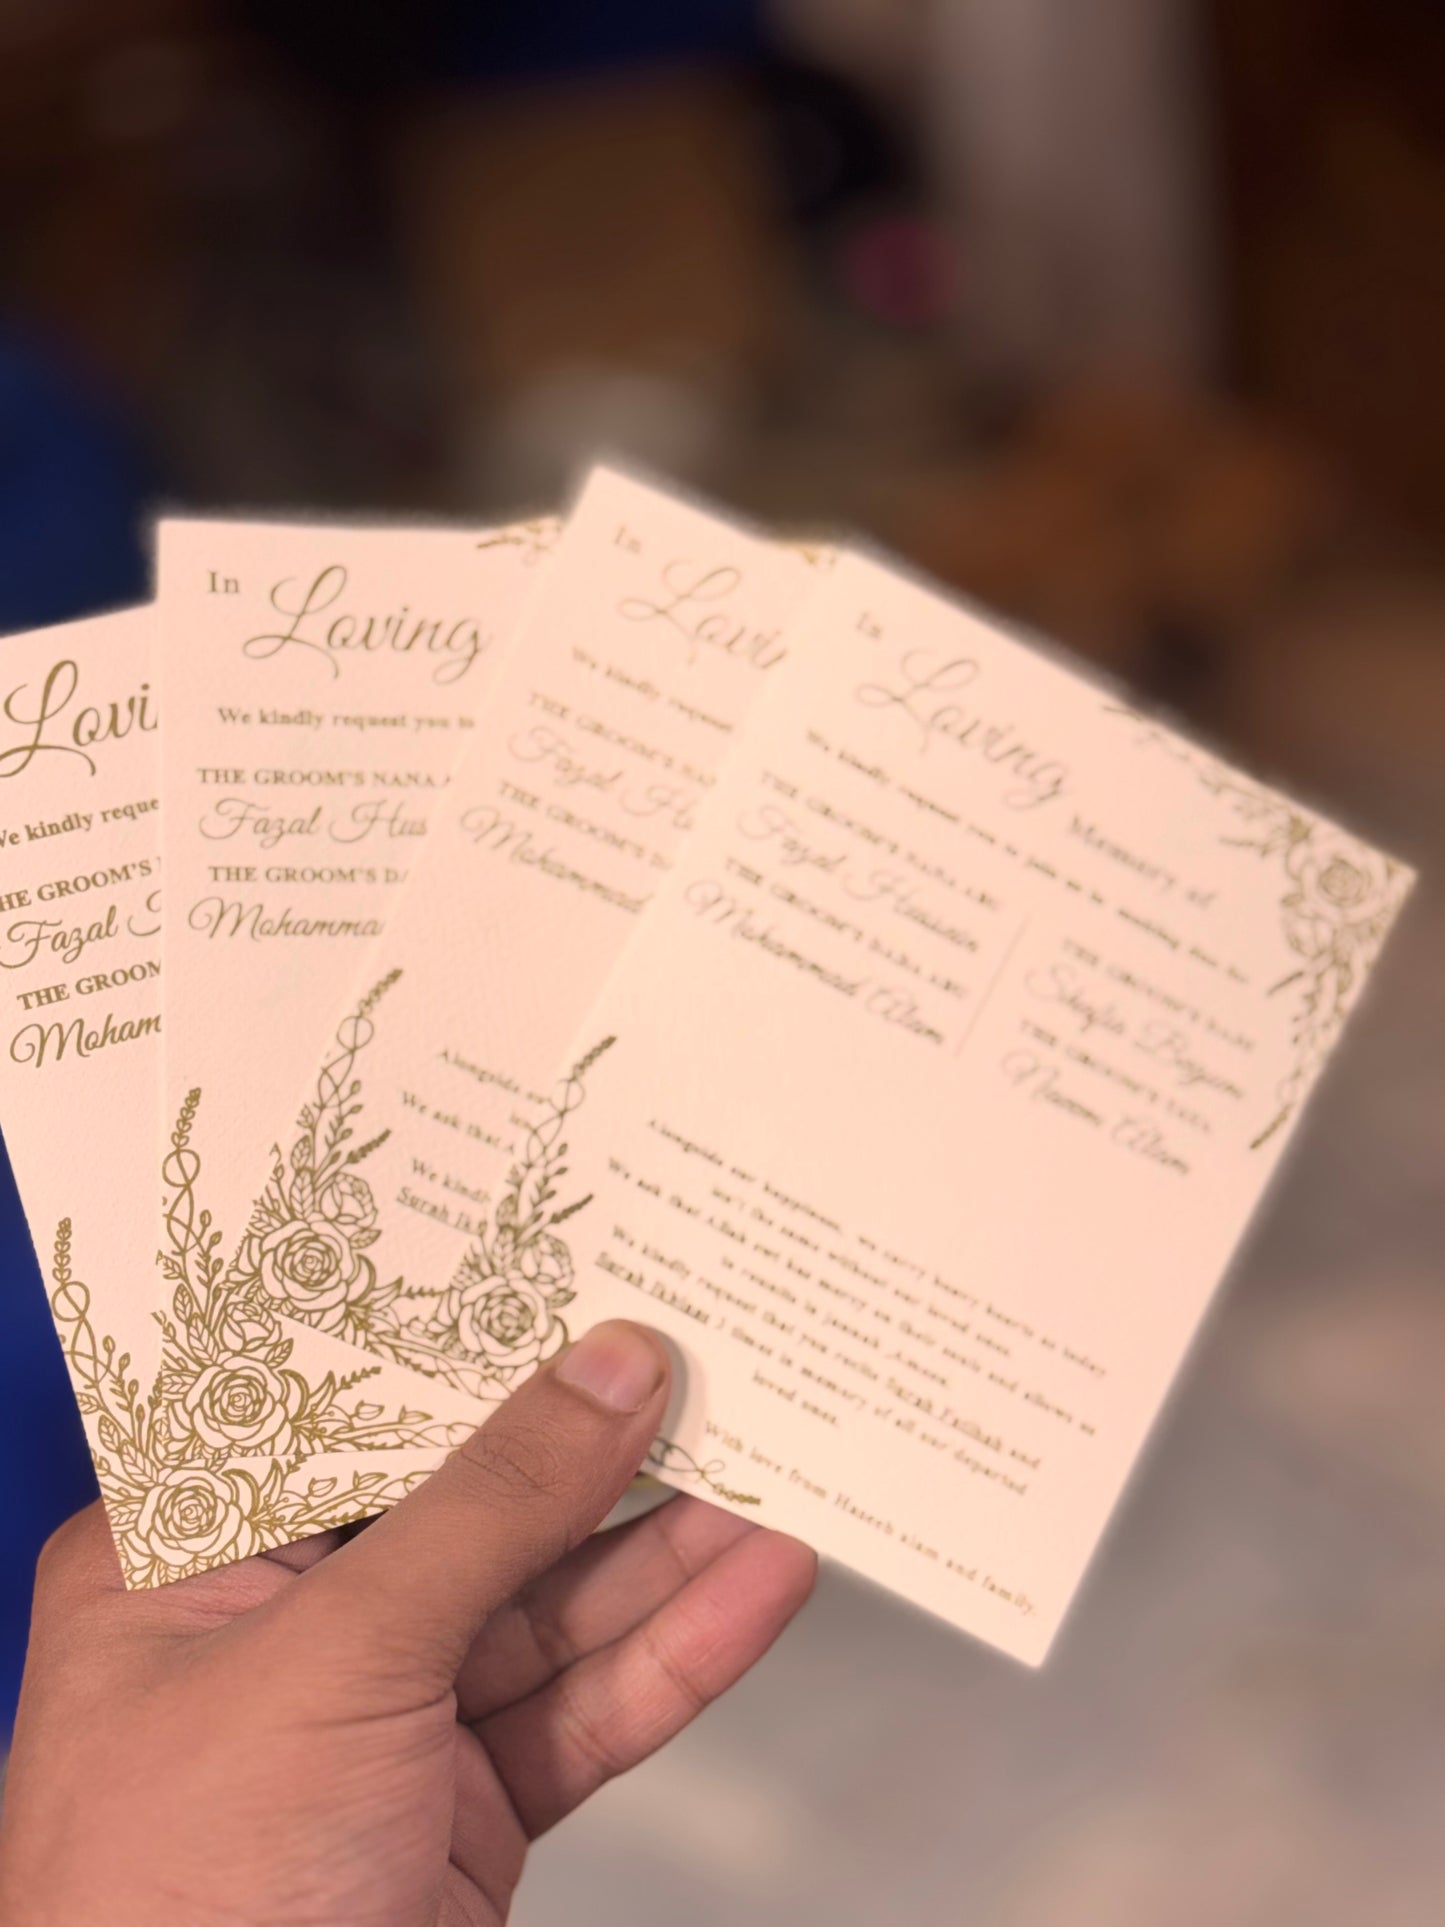 Lovi
We kindly reque
THE GROOM'S
Fazal
THE GROOM
Moham
In
Loving
We kindly request you to
THE GROOM'S NANA
Fazal Hus
THE GROOM'S DA
Mohamma
In
Lovi
We kindly request
THE GROOM'S NA
Fazal Hu
THE GROOM'S D
Mohammad
Alongside
We ask that A
We kindl
Surah Ik
In
Loving
Memory of
We kindly request you to join us in making dua for
THE GROOM'S NANA ABU
Fazal Hussain
THE GROOM'S DADA ABU
Mohammad Alam
THE GROOM'S
Shafia Begum
THE GROOM'S
Alam
Alongside our happiness, we carry heavy hearts as today
isn't the same without our loved ones.
We ask that Allah swt has mercy on their souls and allows us
to reunite in jannah. Ameen.
We kindly request that you recite Surah Fatihah and
Surah Ikhlaas 3 times in memory of all our departed
loved ones.
With love from Haseeb alam and family.